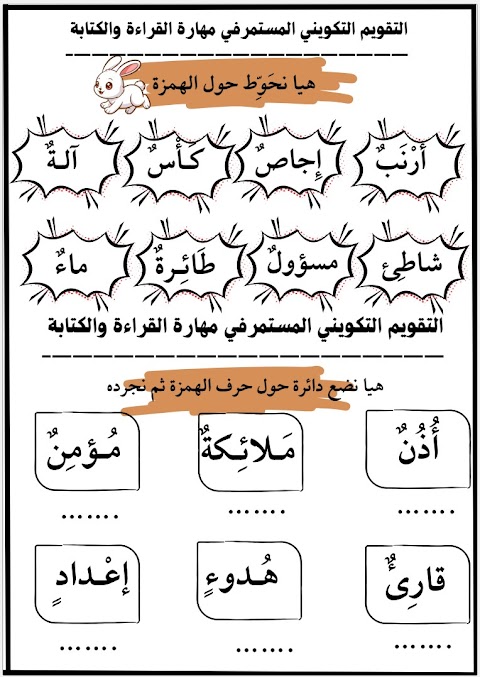 التقويم التكويني المستمرفي مهارة القراءة والكتابة
هيا نحَوِّط حول الهمزة
أرْنَبٌ إِجاصٌ كَـأْسٌ آلـةٌ
شاطِئ مسؤولٌ طَائِـرةٌ ماءٌ
التقويم التكويني المستمرفي مهارة القراءة والكتابة
هيا نضع دائرة حول حرف الهمزة ثم نجرده
أُذُنٌ مَـلائِـكةٌ مُـؤمِنٌ
....... ....... .......
قارِئٌ هُـدوءٍ إعْـدادٍ
....... ....... .......